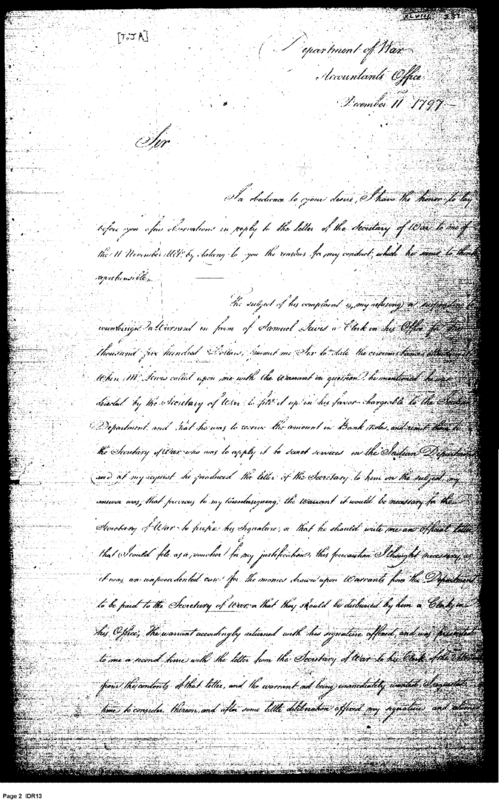 [To J A]
Department of War
Accountants Office
December 11th 1797
Sir
In obedience to your desire, I have the honor to lay
before you a few observations in reply to the letter of the Secretary of War to me of
the 11 November by stating to you the reasons for my conduct, which he seems to think
reprehensible.
The subject of his complaint is my refusing or suspending to
countersign a Warrant in favor of Samuel Lewis a Clerk in his Office for
thousand five hundred Dollars, permit me Sir to state the circumstances
When Mr. Lewis called upon me with the Warrant in question he mentioned he was
directed by the Secretary of War to fill it up in his favor chargeable to the
Department and that he was to receive the amount in Bank notes and
the Secretary of War who was to apply it to secret services in the Indian Department
and at my request he produced the letter of the Secretary to him on the subject, my
answer was, that previous to my countersigning the warrant it would be necessary for the
Secretary of War to prefix his signature, or that he should write me an official letter
that I could file as a voucher for my justification, this precaution I thought necessary as
it was an unprecedented case for the monies drawn upon Warrants from the Department
to be paid to the Secretary of War or that they should be disbursed by him or Clerks in
his Office; The warrant accordingly returned with his signature affixed, and was presented
to me a second time with the letter from the Secretary of War to his Clerk
from the contents of that letter, and the warrant not being immediately I requested
time to consider thereon and after some little deliberation affixed my signature and
Page 2 IDR13